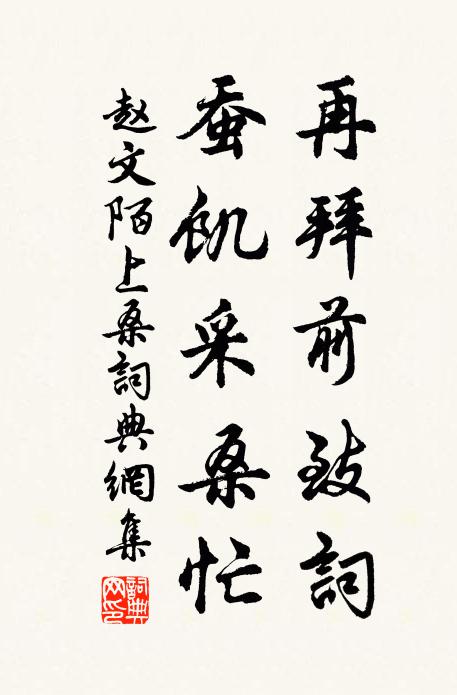 再拜前致詞
蚕飢采桑忙
赵文陌上桑詞典網集
詞典網印